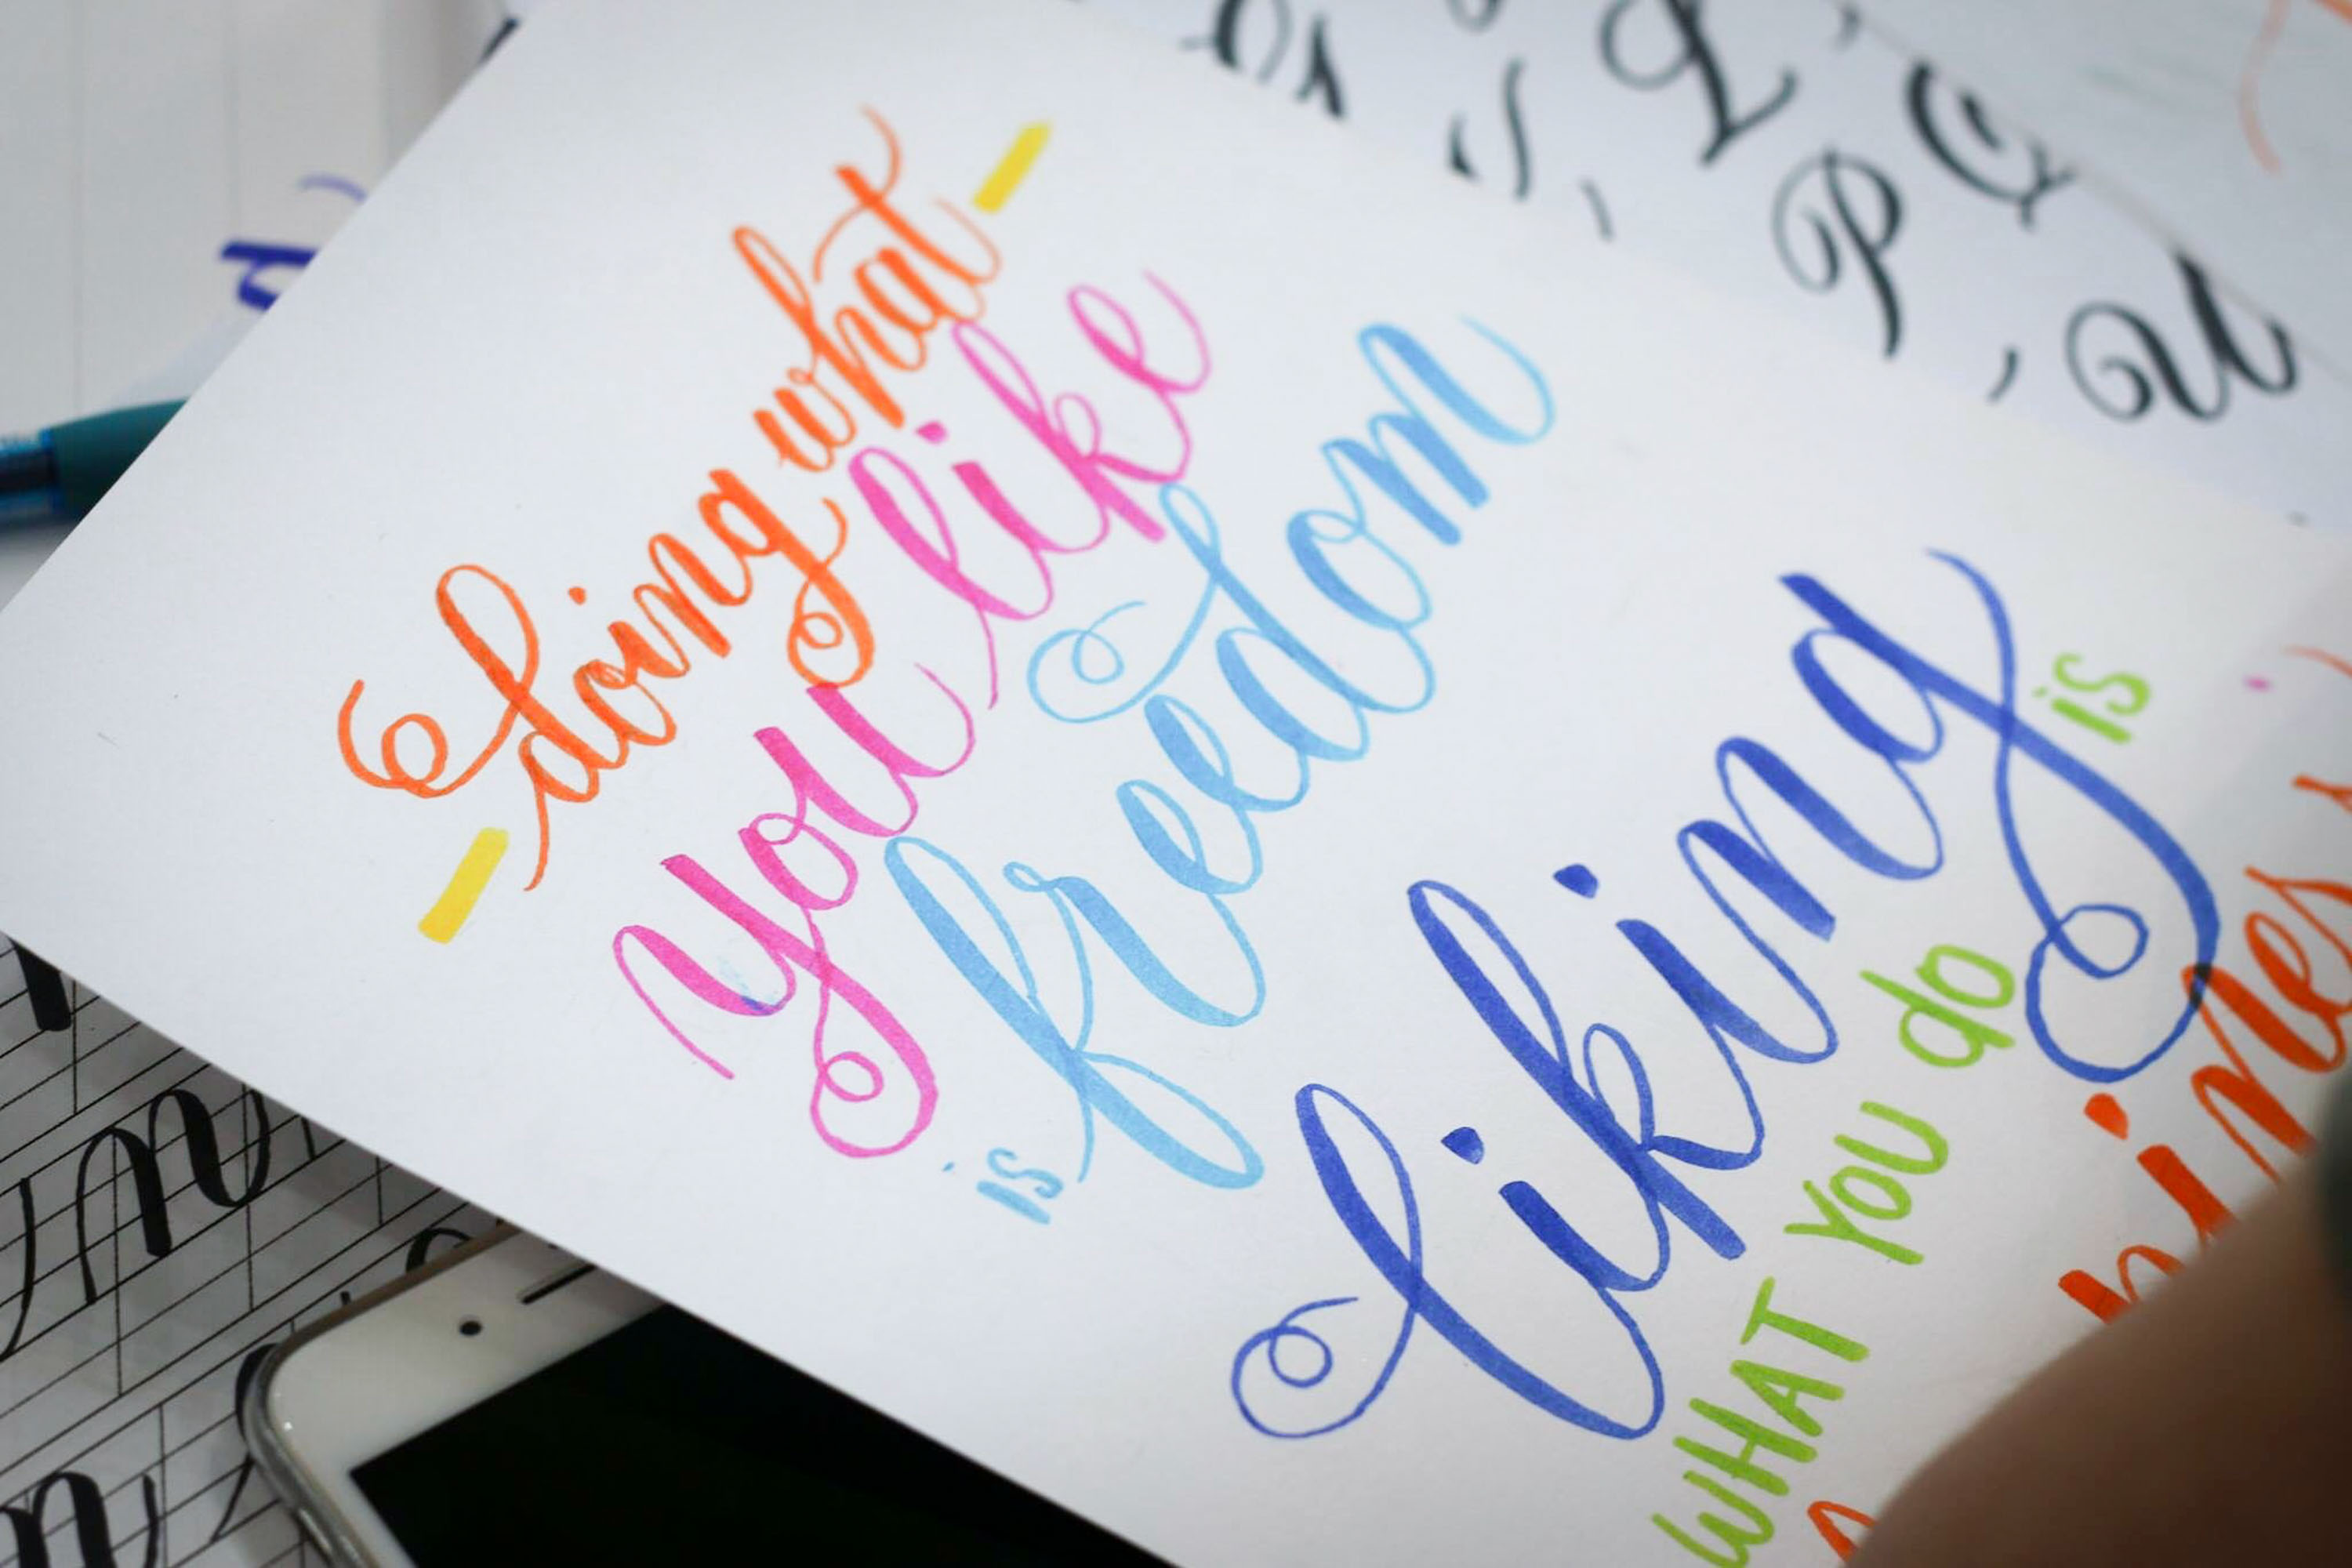 doing what
you like
is freedom
liking
WHAT YOU do is
P Q
U